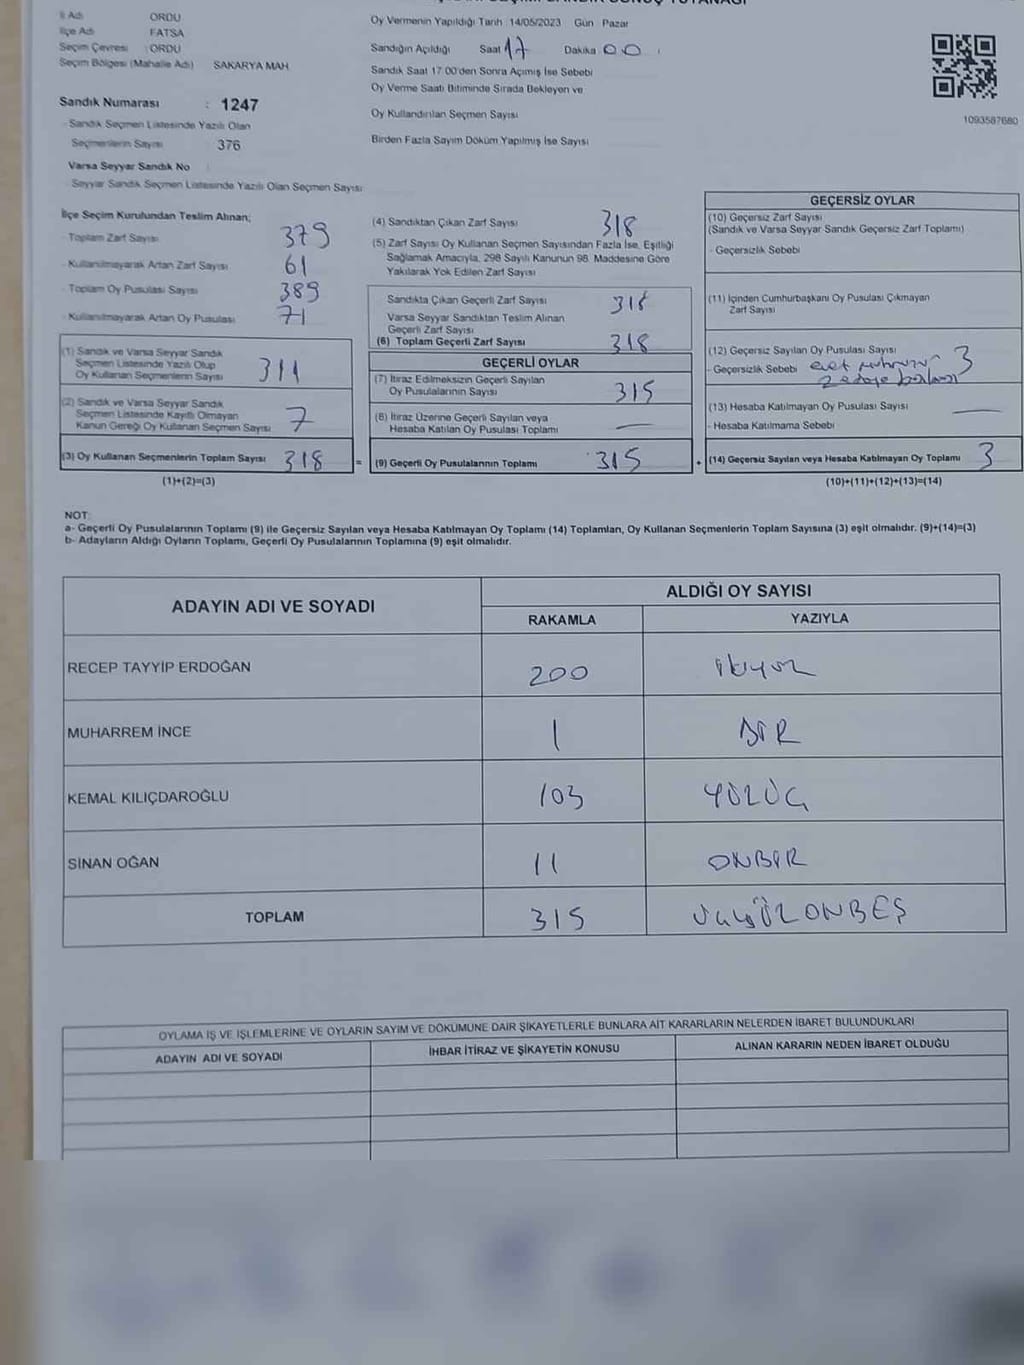 İl Adı ORDU
İlçe Adı FATSA
Seçim Çevresi : ORDU
Seçim Bölgesi (Mahalle Adı) SAKARYA MAH.
Sandık Numarası : 1247
Sandık Seçmen Listesinde Yazılı Olan
Seçmenlerin Sayısı 376
Varsa Seyyar Sandık No
Seyyar Sandık Seçmen Listesinde Yazılı Olan Seçmen Sayısı
Oy Vermenin Yapıldığı Tarih : 14/05/2023 Gün Pazar
Sandığın Açıldığı Saat 17 Dakika 00
Sandık Saat 17:00'den Sonra Açımış İse Sebebi
Oy Verme Saati Bitiminde Sırada Bekleyen ve
Oy Kullandırılan Seçmen Sayısı
Birden Fazla Sayım Döküm Yapılmış İse Sayısı
1093587680
İlçe Seçim Kurulundan Teslim Alınan;
- Toplam Zarf Sayısı 379
- Kullanılmayarak Artan Zarf Sayısı 61
- Toplam Oy Pusulası Sayısı 389
- Kullanılmayarak Artan Oy Pusulası 71
(1) Sandık ve Varsa Seyyar Sandık
Seçmen Listesinde Yazılı Olup
Oy Kullanan Seçmenlerin Sayısı 311
(2) Sandık ve Varsa Seyyar Sandık
Seçmen Listesinde Kayıtlı Olmayan
Kanun Gereği Oy Kullanan Seçmen Sayısı 7
(3) Oy Kullanan Seçmenlerin Toplam Sayısı 318 =
(1)+(2)=(3)
(4) Sandıktan Çıkan Zarf Sayısı 318
(5) Zarf Sayısı Oy Kullanan Seçmen Sayısından Fazla İse, Eşitliği
Sağlamak Amacıyla, 298 Sayılı Kanunun 98. Maddesine Göre
Yakılarak Yok Edilen Zarf Sayısı
Sandıkta Çıkan Geçerli Zarf Sayısı 318
Varsa Seyyar Sandıktan Teslim Alınan
Geçerli Zarf Sayısı
(6) Toplam Geçerli Zarf Sayısı 318
GEÇERLİ OYLAR
(7) İtiraz Edilmeksizin Geçerli Sayılan
Oy Pusulalarının Sayısı 315
(8) İtiraz Üzerine Geçerli Sayılan veya
Hesaba Katılan Oy Pusulası Toplamı —
(9) Geçerli Oy Pusulalarının Toplamı 315 +
GEÇERSİZ OYLAR
(10) Geçersiz Zarf Sayısı
(Sandık ve Varsa Seyyar Sandık Geçersiz Zarf Toplamı)
- Geçersizlik Sebebi
(11) İçinden Cumhurbaşkanı Oy Pusulası Çıkmayan
Zarf Sayısı
(12) Geçersiz Sayılan Oy Pusulası Sayısı 3
- Geçersizlik Sebebi evet mührünü
(13) Hesaba Katılmayan Oy Pusulası Sayısı —
- Hesaba Katılmama Sebebi
(14) Geçersiz Sayılan veya Hesaba Katılmayan Oy Toplamı 3
(10)+(11)+(12)+(13)=(14)
NOT:
a- Geçerli Oy Pusulalarının Toplamı (9) ile Geçersiz Sayılan veya Hesaba Katılmayan Oy Toplamı (14) Toplamları, Oy Kullanan Seçmenlerin Toplam Sayısına (3) eşit olmalıdır. (9)+(14)=(3)
b- Adayların Aldığı Oyların Toplamı, Geçerli Oy Pusulalarının Toplamına (9) eşit olmalıdır.
ADAYIN ADI VE SOYADI ALDIĞI OY SAYISI
RAKAMLA YAZIYLA
RECEP TAYYİP ERDOĞAN 200 ikiyüz
MUHARREM İNCE 1 BİR
KEMAL KILIÇDAROĞLU 103 YÜZÜÇ
SİNAN OĞAN 11 ONBİR
TOPLAM 315 ÜÇYÜZONBEŞ
OYLAMA İŞ VE İŞLEMLERİNE VE OYLARIN SAYIM VE DÖKÜMÜNE DAİR ŞİKAYETLERLE BUNLARA AİT KARARLARIN NELERDEN İBARET BULUNDUKLARI
ADAYIN ADI VE SOYADI İHBAR İTİRAZ VE ŞİKAYETİN KONUSU ALINAN KARARIN NEDEN İBARET OLDUĞU